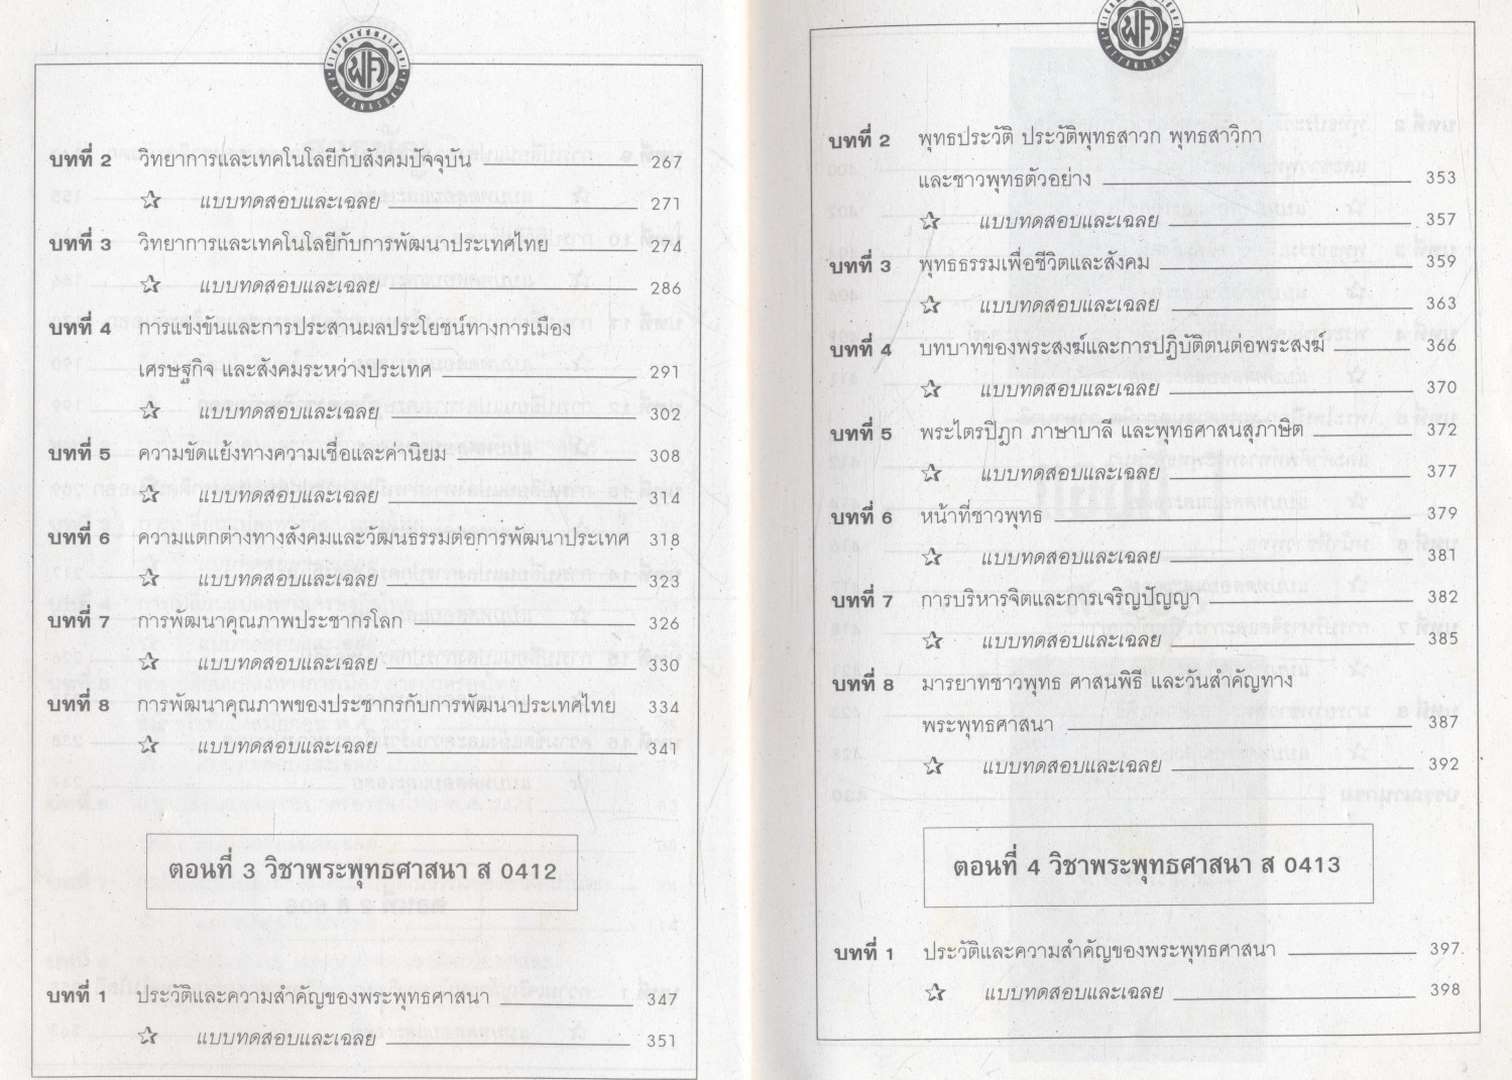 บทที่ 2 วิทยาการและเทคโนโลยีกับสังคมปัจจุบัน 267
☆ แบบทดสอบและเฉลย 271
บทที่ 3 วิทยาการและเทคโนโลยีกับการพัฒนาประเทศไทย 274
☆ แบบทดสอบและเฉลย 286
บทที่ 4 การแข่งขันและการประสานผลประโยชน์ทางการเมือง
เศรษฐกิจ และสังคมระหว่างประเทศ 291
☆ แบบทดสอบและเฉลย 302
บทที่ 5 ความขัดแย้งทางความเชื่อและค่านิยม 308
☆ แบบทดสอบและเฉลย 314
บทที่ 6 ความแตกต่างทางสังคมและวัฒนธรรมต่อการพัฒนาประเทศ 318
☆ แบบทดสอบและเฉลย 323
บทที่ 7 การพัฒนาคุณภาพประชากรโลก 326
☆ แบบทดสอบและเฉลย 330
บทที่ 8 การพัฒนาคุณภาพของประชากรกับการพัฒนาประเทศไทย 334
☆ แบบทดสอบและเฉลย 341
ตอนที่ 3 วิชาพระพุทธศาสนา ส 0412
บทที่ 1 ประวัติและความสำคัญของพระพุทธศาสนา 347
☆ แบบทดสอบและเฉลย 351
บทที่ 2 พุทธประวัติ ประวัติพุทธสาวก พุทธสาวิกา
และชาวพุทธตัวอย่าง 353
☆ แบบทดสอบและเฉลย 357
บทที่ 3 พุทธธรรมเพื่อชีวิตและสังคม 359
☆ แบบทดสอบและเฉลย 363
บทที่ 4 บทบาทของพระสงฆ์และการปฏิบัติตนต่อพระสงฆ์ 366
☆ แบบทดสอบและเฉลย 370
บทที่ 5 พระไตรปิฎก ภาษาบาลี และพุทธศาสนสุภาษิต 372
☆ แบบทดสอบและเฉลย 377
บทที่ 6 หน้าที่ชาวพุทธ 379
☆ แบบทดสอบและเฉลย 381
บทที่ 7 การบริหารจิตและการเจริญปัญญา 382
☆ แบบทดสอบและเฉลย 385
บทที่ 8 มารยาทชาวพุทธ ศาสนพิธี และวันสำคัญทาง
พระพุทธศาสนา 387
☆ แบบทดสอบและเฉลย 392
ตอนที่ 4 วิชาพระพุทธศาสนา ส 0413
บทที่ 1 ประวัติและความสำคัญของพระพุทธศาสนา 397
☆ แบบทดสอบและเฉลย 398